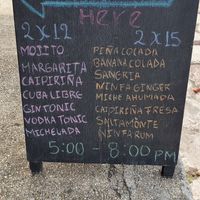 Here
2x12 2x15
MOJITO
MARGARITA
CAIPIRIÑA
CUBA LIBRE
GIN TONIC
VODKA TONIC
MICHELADA
PIÑA COLADA
BANANA COLADA
SANGRIA
NINFA GINGER
MICHE AHUMADA
CAIPIRIÑA FRESA
SALTAMONTE
NINFA RUM
5:00 - 8:00 PM